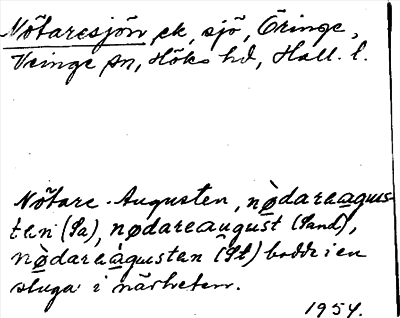 Nötaresjön, ek, sjö, Öringe,
Veinge sn, Höks hd, Hall. l.
Nötare-Augusten, nø̀dareagus-
ten (Sa), nødareaugust (Sand),
nø̀dareàgusten (St) bodde i en
stuga i närheten.
1954.